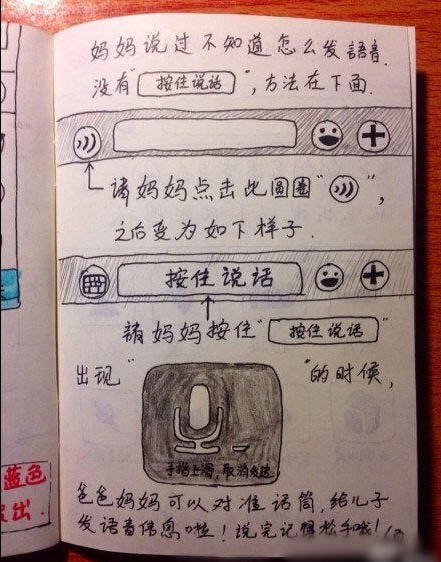 妈妈说过不知道怎么发語音.
没有"按住说话",方法在下面.
請妈妈点击此圆圈" ",
之后变为如下样子.
按住说话
請妈妈按住"按住说话"
出现" "的时候,
手指上滑,取消发送
爸爸妈妈可以对准话筒,给儿子
发语音信息啦!说完记得松手哦!
蓝色
出.